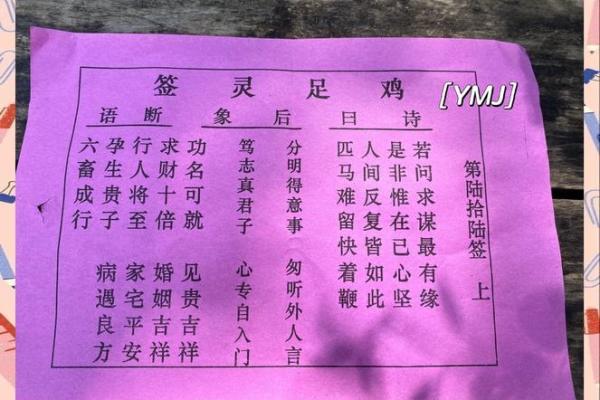 鸡足灵签
[YMJ]
第陆拾陆签 上
诗曰
若问求谋最有缘
是非惟在已心坚
人间反复皆如此
匹马难留快着鞭
后象
分明得意事 匆听外人言
笃志真君子 心专自入门
断语
功名可就 见贵吉祥
求财十倍 婚姻吉祥
行人将至 家宅平安
孕生贵子 病遇良方
六畜成行